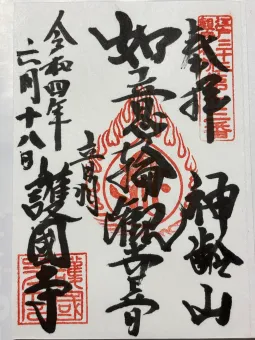 奉拝
神齢山
如意輪観世音
令和四年
六月十八日
音羽
護國寺